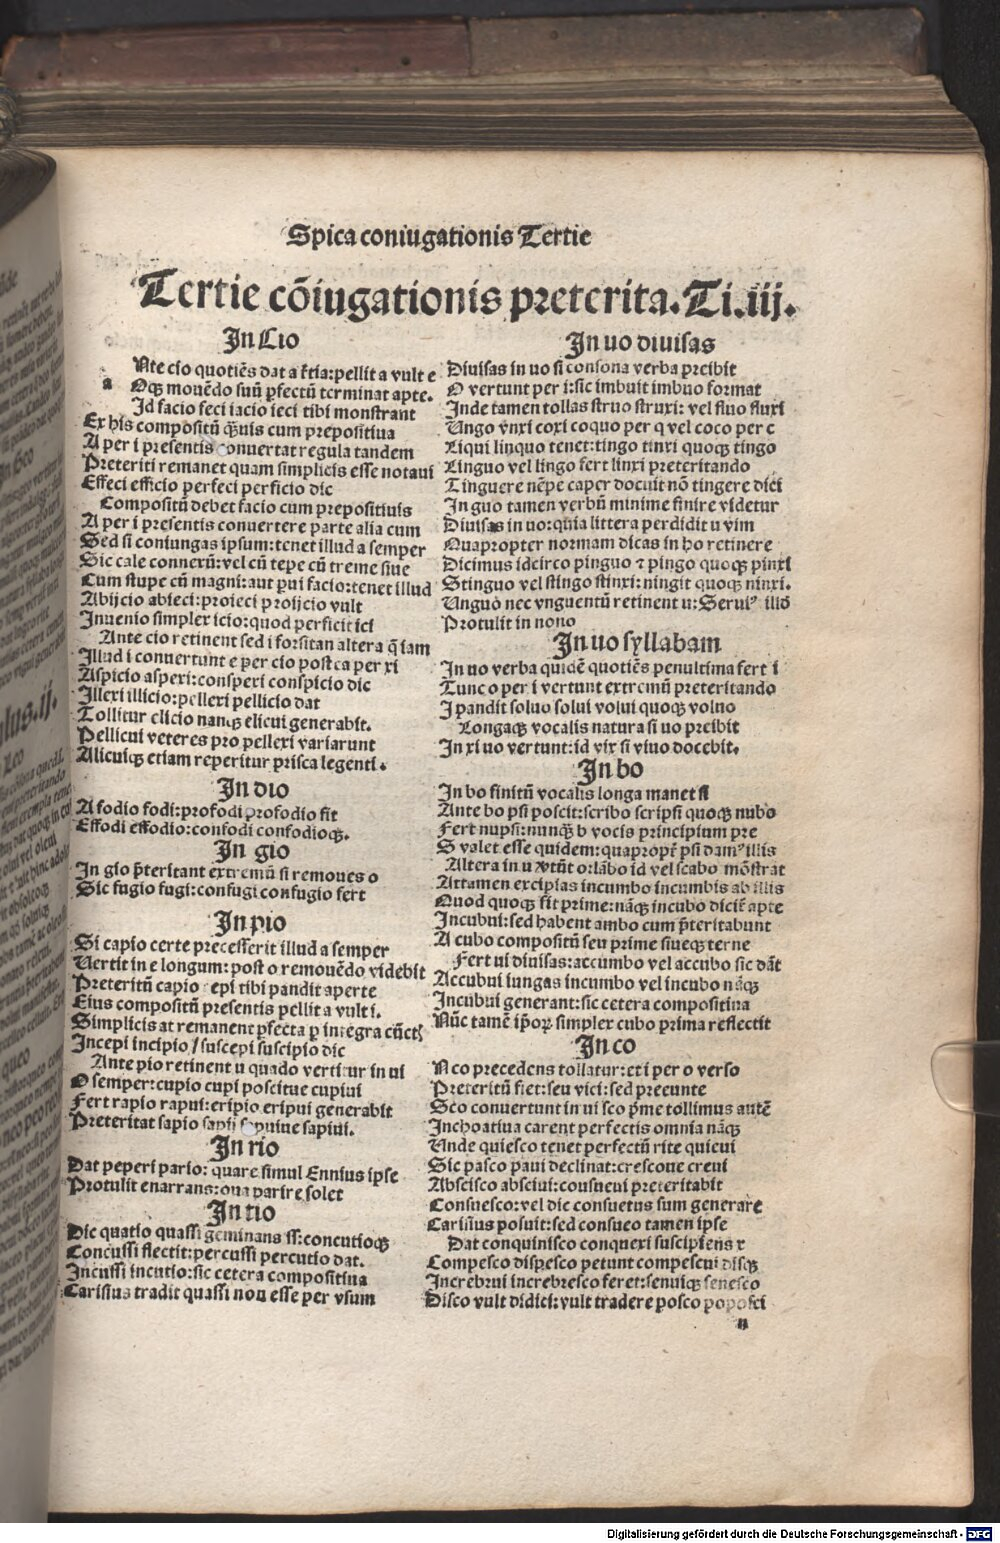 Spica coniugationis Tertie
Tertie cõiugationis preterita. Ti. iij.
In Cio
Nte cio quotiẽs dat a
a Oqꝫ mouẽdo suũ ꝑfectũ terminat apte.
Id facio feci iacio ieci tibi monstrant
Ex his compositũ q̃uis cum prepositiua
A per i presentis conuertat regula tandem
Preteriti remanet quam simplicis esse notaui
Effeci efficio perfeci perficio dic
Compositũ debet facio cum prepositiuis
A per i presentis conuertere parte alia cum
Sed si coniungas ipsum: tenet illud a semper
Sic cale connexũ: vel cũ tepe cũ treme siue
Cum stupe cũ magni: aut ꝑui facio: tenet illud
Abijcio abieci: proieci proijcio vult
Inuenio simplex icio: quod perficit ici
Ante cio retinent sed i forsitan altera q̃ iam
Illud i conuertunt e per cio post ca per xi
Aspicio asperi: consperi conspicio dic
Illexi illicio: pellexi pellicio dat
Tollitur elicio nanqꝫ elicui generabit.
Pellicui veteres pro pellexi variarunt
Alicuiqꝫ etiam reperitur prisca legenti.
In dio
A fodio fodi: profodi profodio fit
Effodi effodio: confodi confodioqꝫ.
In gio
In gio p̃teritant extremũ si remoues o
Sic fugio fugi: confugi confugio fert
In pio
Si capio certe precesserit illud a semper
Uertit in e longum: post o remouẽdo videbit
Preteritũ capio cepi tibi pandit aperte
Eius compositũ presentis pellit a vult i.
Simplicis at remanent ꝑfecta ꝑ integra cũctꝭ
Incepi incipio / suscepi suscipio dic
Ante pio retinent u quado vertitur in ui
O semper: cupio cupi poscitue cupiui
Fert rapio rapui: eripio eripui generabit
Preteritat sapio sapij sapuiue sapiui.
In rio
Dat peperi pario: quare simul Ennius ipse
Protulit enarrans: oua parire solet
In tio
Dic quatio quassi geminans ss: concutioqꝫ
Concussi flectit: percussi percutio dat.
Incussi incutio: sic cetera compositiua
Carisius tradit quassi non esse per vsum
In uo diuisas
Diuisas in uo si consona verba preibit
O vertunt per i: sic imbuit imbuo format
Inde tamen tollas struo struxi: vel fluo fluxi
Ungo vnxi coxi coquo per q vel coco per c
Liqui linquo tenet: tingo tinxi quoqꝫ tingo
Linguo vel lingo fert linxi preteritando
Tinguere nẽpe caper docuit nõ tingere dici
In guo tamen verbũ minime finire videtur
Diuisas in uo: quia littera perdidit u vim
Quapropter normam dicas in ho retinere
Dicimus idcirco pinguo ⁊ pingo quoqꝫ pinxi
Stinguo vel stingo stinxi: ningit quoqꝫ ninxi.
Unguo nec vnguentũ retinent u: Seruiꝰ illd
Protulit in nono
In uo syllabam
In uo verba quidẽ quotiẽs penultima fert i
Tunc o per i vertunt extremũ preteritando
I pandit soluo solui volui quoqꝫ voluo
Longaqꝫ vocalis natura si uo preibit
In xi uo vertunt: id vix si viuo docebit.
In bo
In bo finitũ vocalis longa manet si
Ante bo psi poscit: scribo scripsi quoqꝫ nubo
Fert nupsi: nunqꝫ b vocis principium pre
S valet esse quidem: quapropt̃ psi damꝰ illis
Altera in u
Attamen excipias incumbo incumbis ab illis
Quod quoqꝫ fit prime: nãqꝫ incubo dicit̃ apte
Incubui: sed habent ambo cum p̃teritabunt
A cubo compositũ seu prime siueqꝫ terne
Fert ui diuisas: accumbo vel accubo sic dãt
Accubui iungas incumbo vel incubo nãqꝫ
Incubui generant: sic cetera compositiua
Nũc tamẽ ip̃oꝝ simplex cubo prima reflectit
In co
N co precedens tollatur: et i per o verso
Preteritũ fiet: seu vici: sed preeunte
Sco conuertunt in ui sco p̃me tollimus autẽ
Inchoatiua carent perfectis omnia nãqꝫ
Unde quiesco tenet perfectũ rite quieui
Sic pasco paui declinat: crescoue creui
Abscisco absciui: consueui preteritabit
Consuesco: vel dic consuetus sum generare
Carisius posuit: sed consueo tamen ipse
Dat conquinisco conquexi suscipiens x
Compesco dispesco petunt compescui disqꝫ
Increbrui increbresco feret: senuiqꝫ senesco
Disco vult didici: vult tradere posco poposci
n
Digitalisierung gefördert durch die Deutsche Forschungsgemeinschaft - DFG